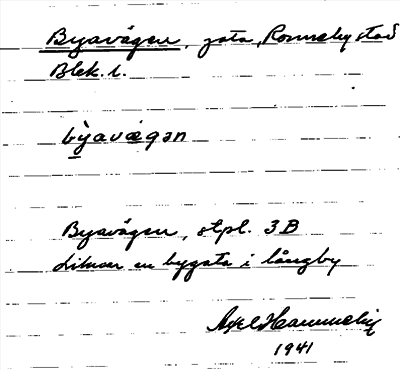 Byavägen, gata, Ronneby stad
Blek. l.
b̲ỳavægən
Byavägen, stpl. 3B
Liknar en bygata i långby
Axel Hammarlig
1941